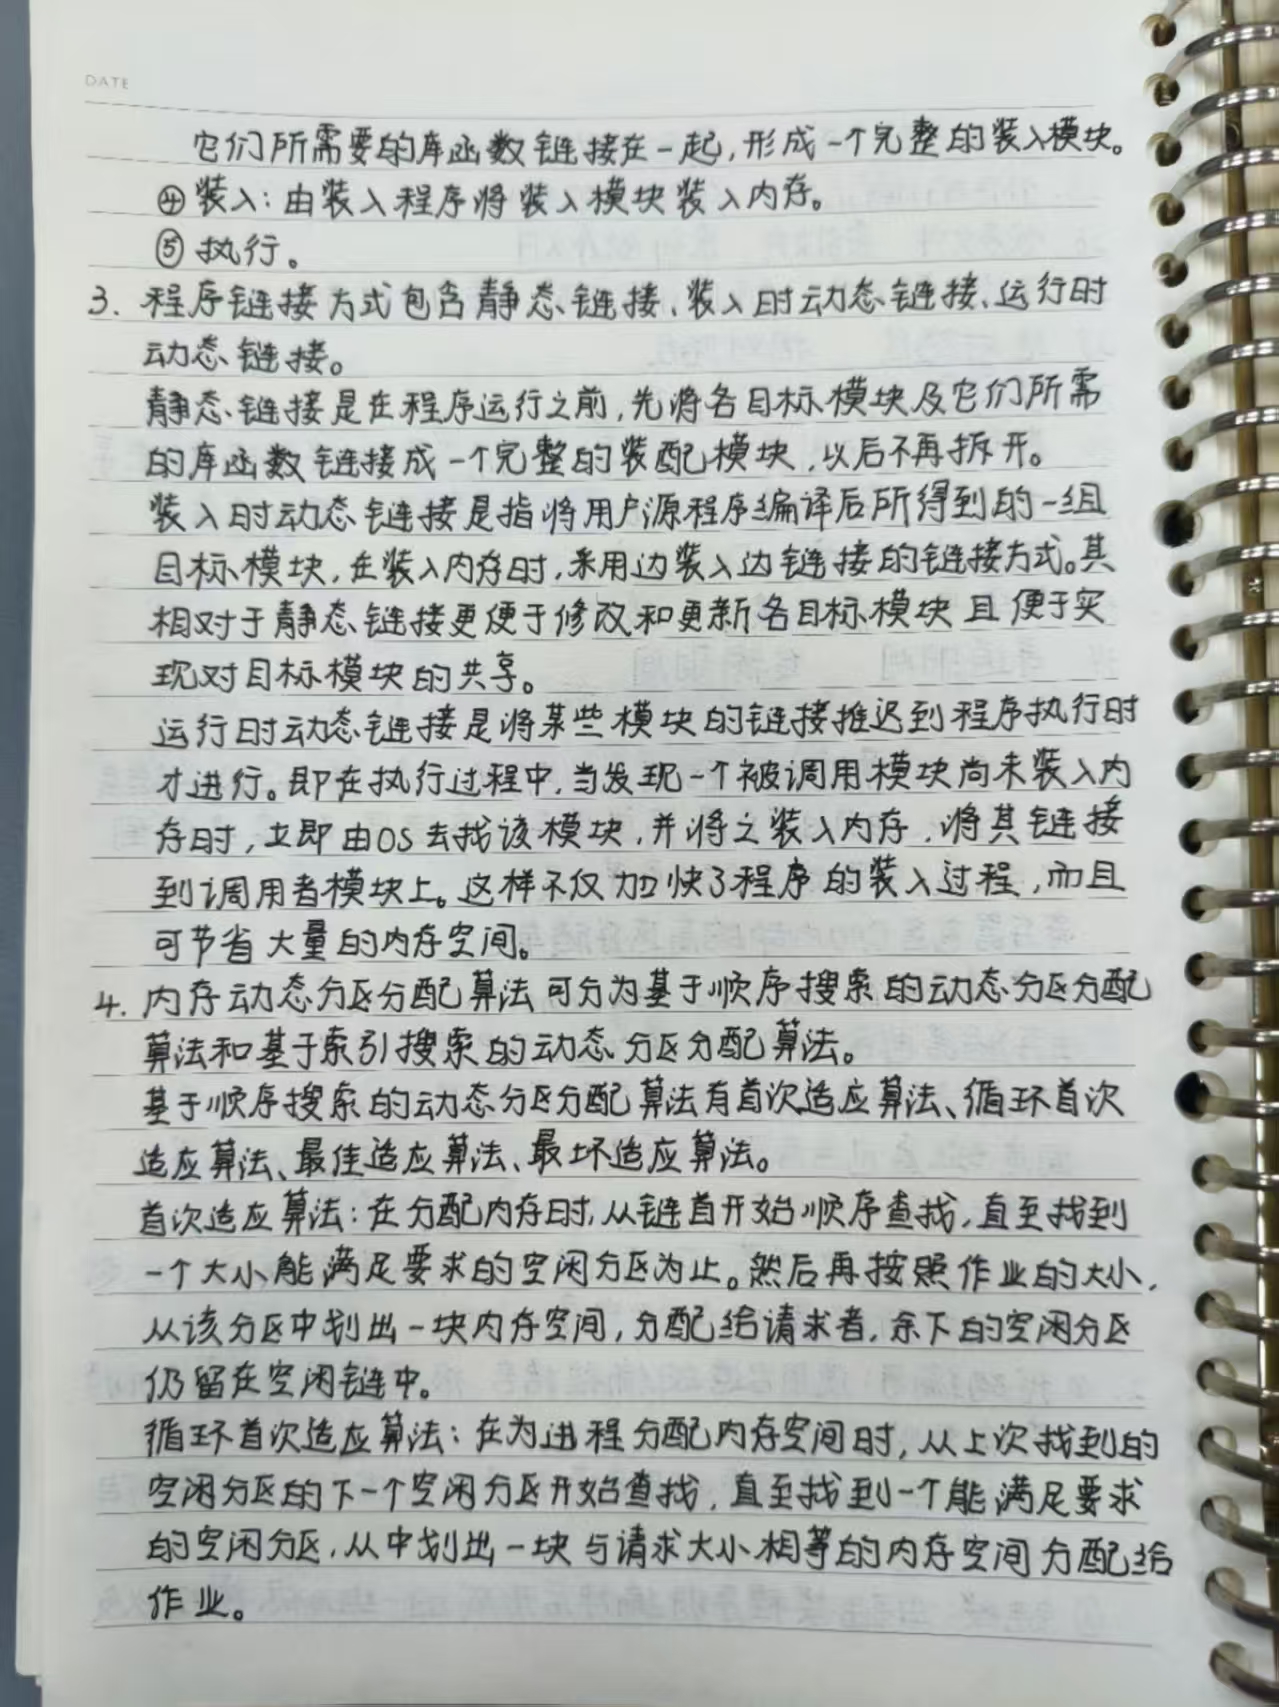 DATE
它们所需要的库函数链接在一起,形成一个完整的装入模块。
④装入:由装入程序将装入模块装入内存。
⑤执行。
3. 程序链接方式包含静态链接、装入时动态链接、运行时
动态链接。
静态链接是在程序运行之前,先将各目标模块及它们所需
的库函数链接成一个完整的装配模块,以后不再拆开。
装入时动态链接是指将用户源程序编译后所得到的一组
目标模块,在装入内存时,采用边装入边链接的链接方式。其
相对于静态链接更便于修改和更新各目标模块且便于实
现对目标模块的共享。
运行时动态链接是将某些模块的链接推迟到程序执行时
才进行。即在执行过程中,当发现一个被调用模块尚未装入内
存时,立即由OS去找该模块,并将之装入内存,将其链接
到调用者模块上。这样不仅加快了程序的装入过程,而且
可节省大量的内存空间。
4. 内存动态分区分配算法可分为基于顺序搜索的动态分区分配
算法和基于索引搜索的动态分区分配算法。
基于顺序搜索的动态分区分配算法有首次适应算法、循环首次
适应算法、最佳适应算法、最坏适应算法。
首次适应算法:在分配内存时,从链首开始顺序查找,直至找到
一个大小能满足要求的空闲分区为止。然后再按照作业的大小,
从该分区中划出一块内存空间,分配给请求者,余下的空闲分区
仍留在空闲链中。
循环首次适应算法:在为进程分配内存空间时,从上次找到的
空闲分区的下一个空闲分区开始查找,直至找到一个能满足要求
的空闲分区,从中划出一块与请求大小相等的内存空间分配给
作业。